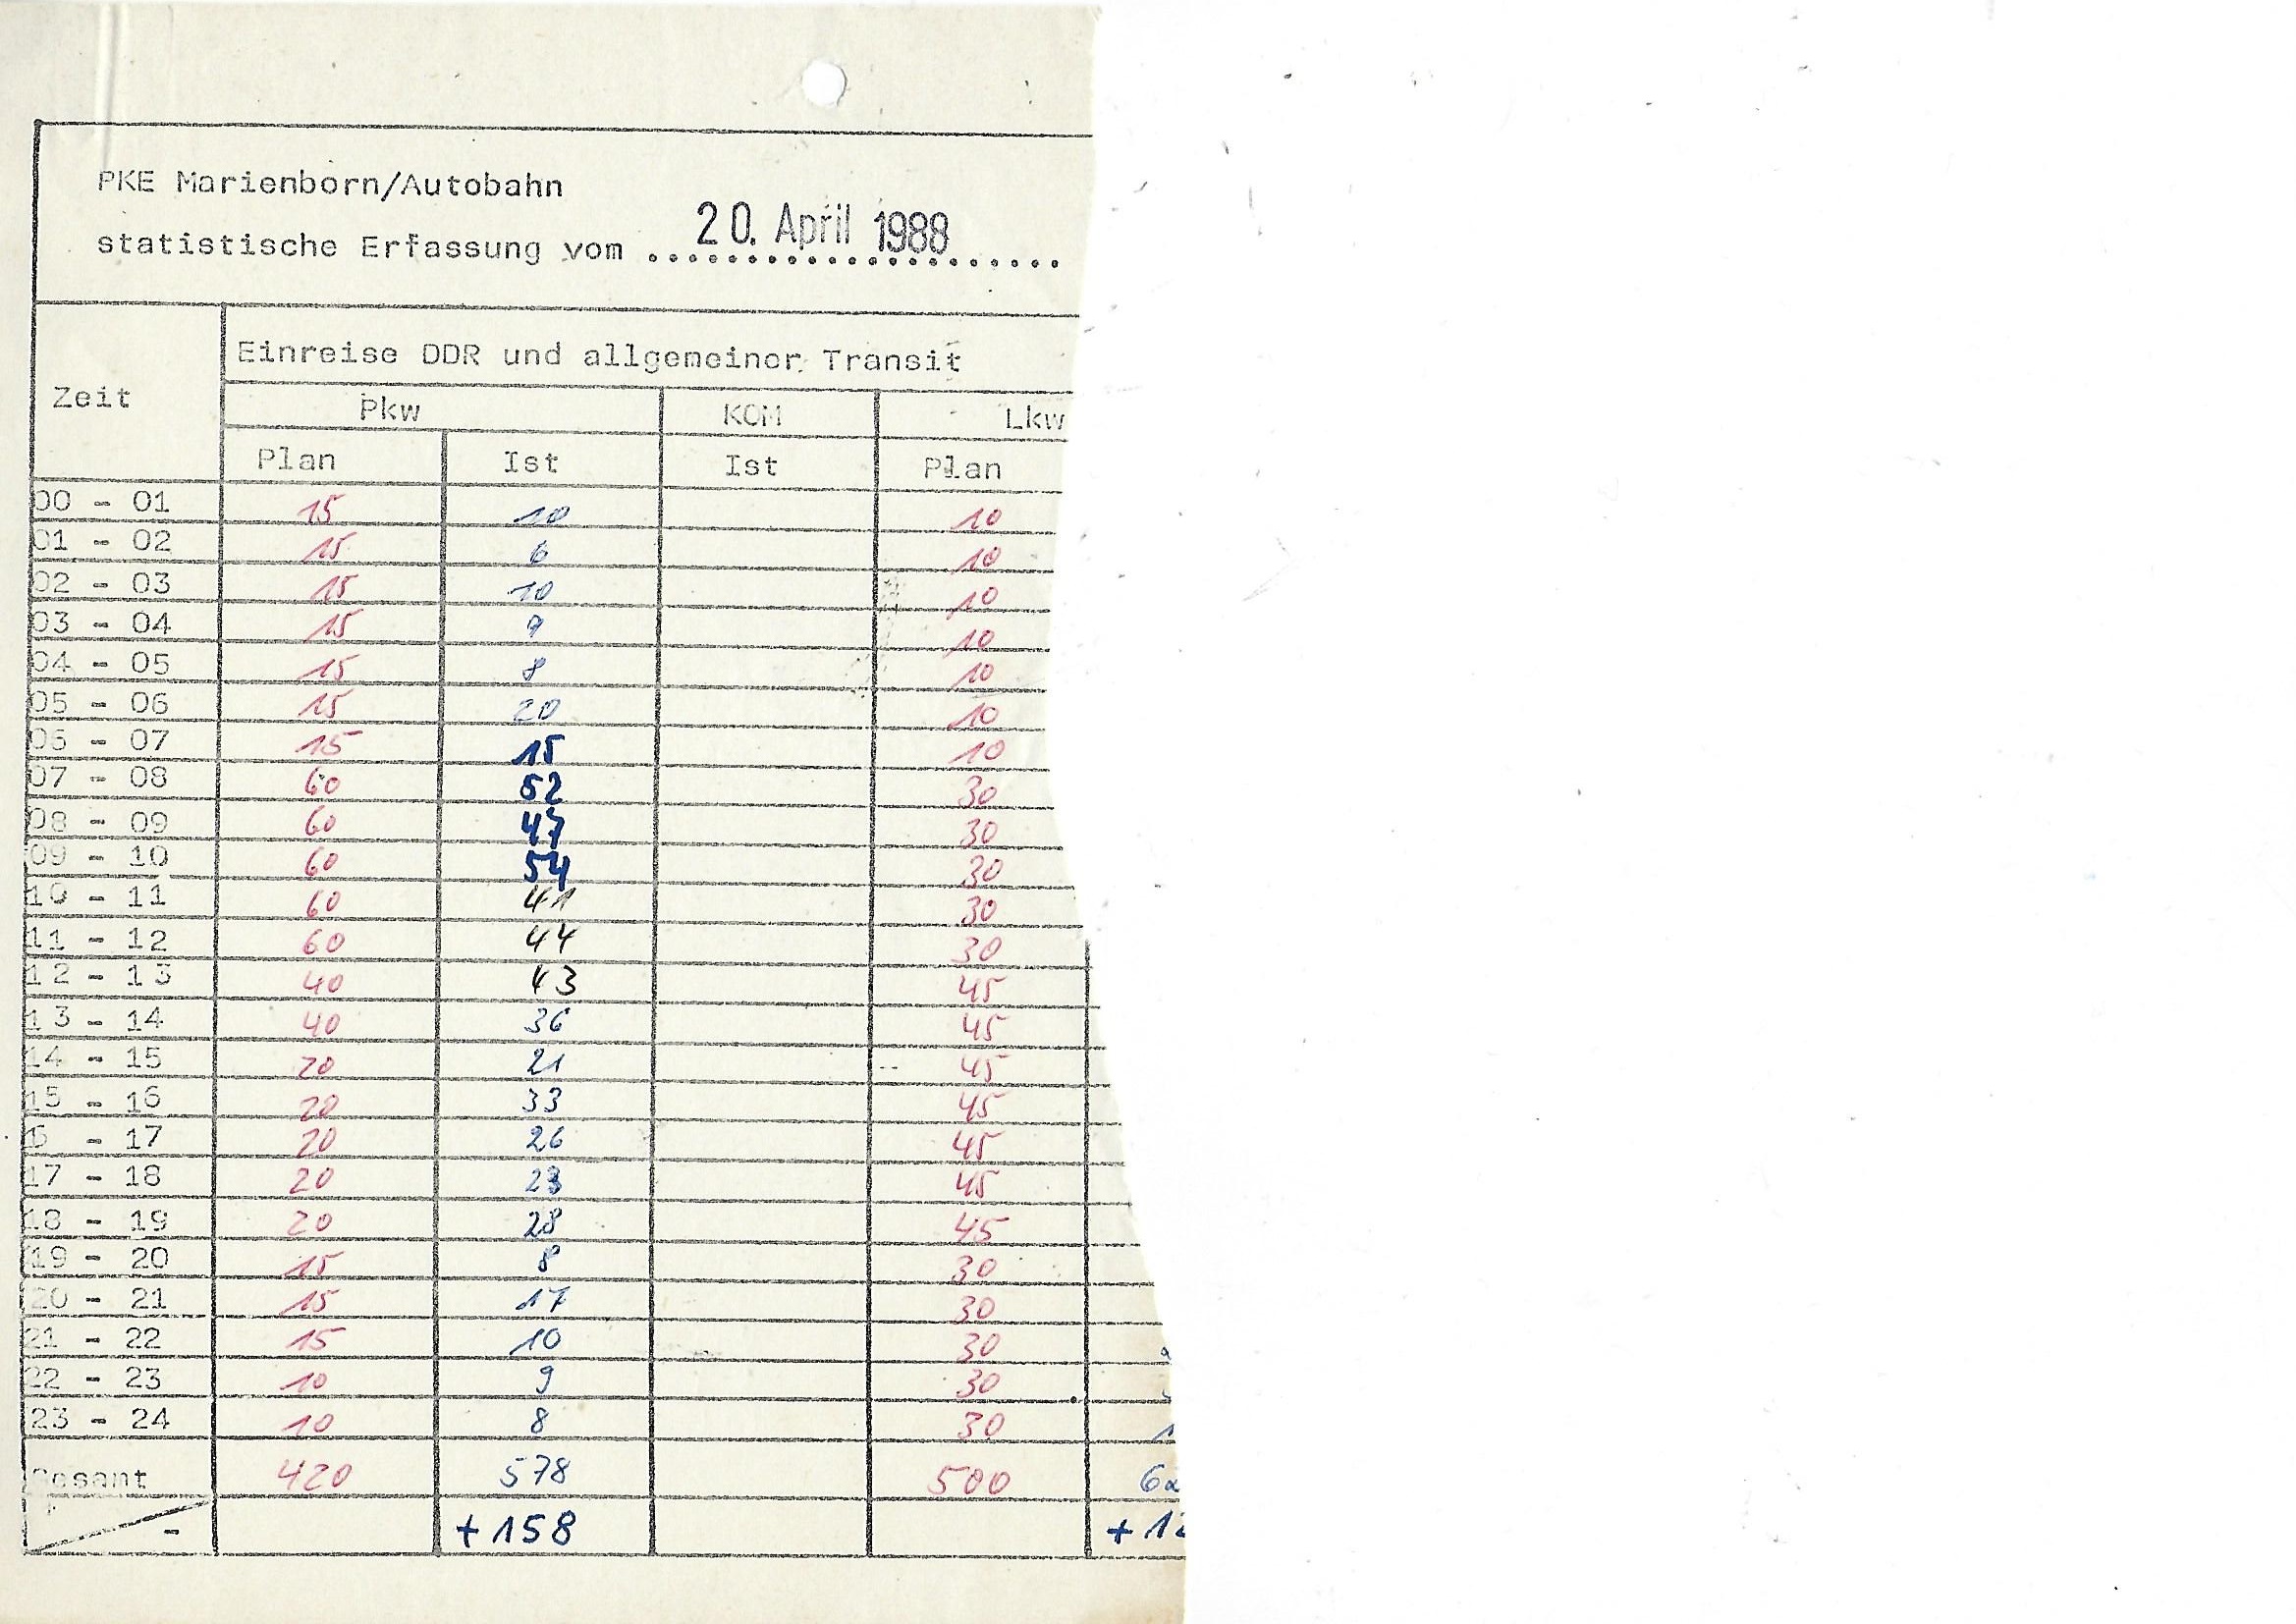 PKE Marienborn/Autobahn
statistische Erfassung vom ..................... 20. April 1988
Zeit
Einreise DDR und allgemeiner Transit
Pkw KOM Lkw
Plan Ist Ist Plan
00 - 01 15 10 10
01 - 02 15 6 10
02 - 03 15 10 10
03 - 04 15 9 10
04 - 05 15 8 10
05 - 06 15 20 10
06 - 07 15 15 10
07 - 08 60 52 30
08 - 09 60 47 30
09 - 10 60 54 30
10 - 11 60 41 30
11 - 12 60 44 30
12 - 13 40 43 45
13 - 14 40 36 45
14 - 15 20 21 45
15 - 16 20 33 45
- 17 20 26 45
17 - 18 20 23 45
18 - 19 20 28 45
19 - 20 15 8 30
20 - 21 15 17 30
21 - 22 15 10 30
22 - 23 10 9 30
23 - 24 10 8 30
Gesamt 420 578 500
- +158